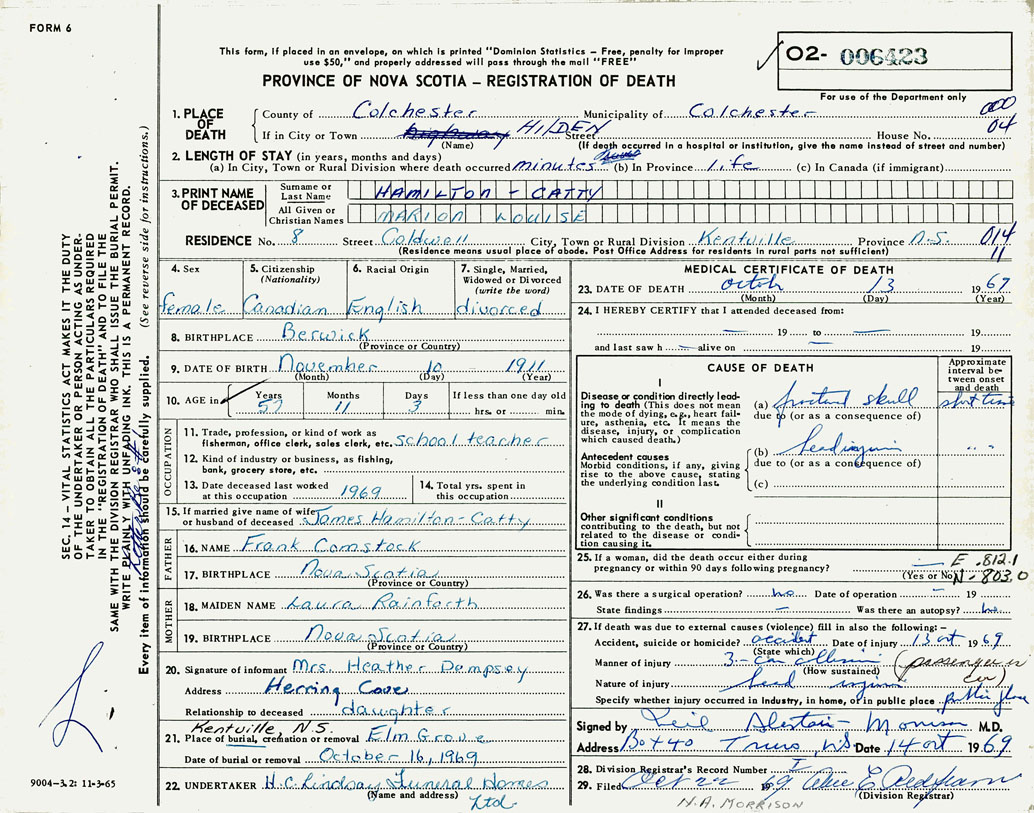 FORM 6
This form, if placed in an envelope, on which is printed "Dominion Statistics – Free, penalty for improper
use $50," and properly addressed will pass through the mail "FREE"
PROVINCE OF NOVA SCOTIA – REGISTRATION OF DEATH
02- 006423
For use of the Department only
1. PLACE OF DEATH
County of Colchester Municipality of Colchester 000
If in City or Town HILDEN Street House No. 04
(Name) (If death occurred in a hospital or institution, give the name instead of street and number)
2. LENGTH OF STAY (in years, months and days)
(a) In City, Town or Rural Division where death occurred minutes (b) In Province life (c) In Canada (if immigrant)
3. PRINT NAME OF DECEASED
Surname or Last Name HAMILTON - CATTY
All Given or Christian Names MARION LOUISE
RESIDENCE No. 8 Street Caldwell City, Town or Rural Division Kentville Province N.S. 014
(Residence means usual place of abode. Post Office Address for residents in rural parts not sufficient) 11
4. Sex female
5. Citizenship (Nationality) Canadian
6. Racial Origin English
7. Single, Married, Widowed or Divorced (write the word) divorced
8. BIRTHPLACE Berwick
(Province or Country)
9. DATE OF BIRTH November 10 1911
(Month) (Day) (Year)
10. AGE in Years 57 Months 11 Days 3 If less than one day old hrs. or min.
OCCUPATION
11. Trade, profession, or kind of work as
fisherman, office clerk, sales clerk, etc. school teacher
12. Kind of industry or business, as fishing,
bank, grocery store, etc.
13. Date deceased last worked
at this occupation 1969
14. Total yrs. spent in
this occupation
15. If married give name of wife
or husband of deceased James Hamilton-Catty
FATHER
16. NAME Frank Comstock
17. BIRTHPLACE Nova Scotia
(Province or Country)
MOTHER
18. MAIDEN NAME Laura Rainforth
19. BIRTHPLACE Nova Scotia
(Province or Country)
20. Signature of informant Mrs. Heather Dempsey
Address Herring Cove
Relationship to deceased daughter
Kentville, N.S.
21. Place of burial, cremation or removal Elm Grove
Date of burial or removal October 16, 1969
22. UNDERTAKER H.C. Lindsay Funeral Homes
(Name and address) Ltd.
MEDICAL CERTIFICATE OF DEATH
23. DATE OF DEATH 13 1969
(Month) (Day) (Year)
24. I HEREBY CERTIFY that I attended deceased from:
19 to 19
and last saw h alive on 19
CAUSE OF DEATH
Approximate interval between onset and death
I
Disease or condition directly leading to death (This does not
mean the mode of dying, e.g., heart failure, asthenia, etc. It means the
disease, injury, or complication
which caused death.)
(a) skull
due to (or as a consequence of)
Antecedent causes
Morbid conditions, if any, giving
rise to the above cause, stating
the underlying condition last.
(b)
due to (or as a consequence of)
(c)
II
Other significant conditions
contributing to the death, but not
related to the disease or condition causing it.
25. If a woman, did the death occur either during
pregnancy or within 90 days following pregnancy?
(Yes or No)
E .812.1
N - 803.0
26. Was there a surgical operation? no Date of operation – 19
State findings – Was there an autopsy? no
27. If death was due to external causes (violence) fill in also the following: –
Accident, suicide or homicide? accident Date of injury 13 oct 1969
(State which)
Manner of injury 3 - car collision (passenger in car)
(How sustained)
Nature of injury head
Specify whether injury occurred in Industry, in home, or in public place public place
Signed by Neil Alastair Morrison M.D.
Address Box 40 Truro, NS Date 14 oct 1969
28. Division Registrar's Record Number
29. Filed Oct 22 1969
(Division Registrar)
N.A. MORRISON
SEC. 14 – VITAL STATISTICS ACT MAKES IT THE DUTY
OF THE UNDERTAKER OR PERSON ACTING AS UNDER-
TAKER TO OBTAIN ALL THE PARTICULARS REQUIRED
IN THE "REGISTRATION OF DEATH" AND TO FILE THE
SAME WITH THE DIVISION REGISTRAR WHO SHALL ISSUE THE BURIAL PERMIT.
WRITE PLAINLY WITH UNFADING INK. THIS IS A PERMANENT RECORD.
Every item of information should be carefully supplied. (See reverse side for instructions.)
9004–3.2: 11-3-65